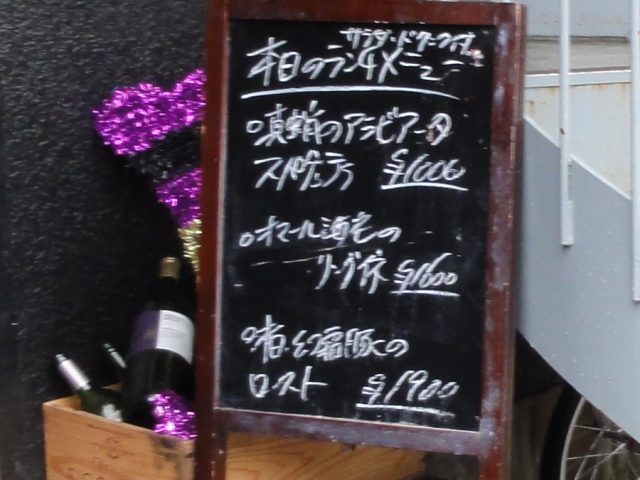 サラダ・ドリンク付
本日のランチメニュー
真蛸のアラビアータ
スパゲッティ ¥1000
オマール海老の
リングイネ ¥1600
幻福豚の
ロースト ¥1900